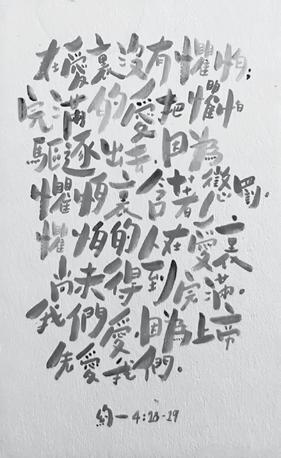 在愛裏沒有懼怕;
完滿的愛把懼怕
驅逐出去.因為
懼怕裏含著懲罰.
懼怕的人在愛裏
尚未得到完滿.
我們愛.因為上帝
先愛我們.
約一4:18-19